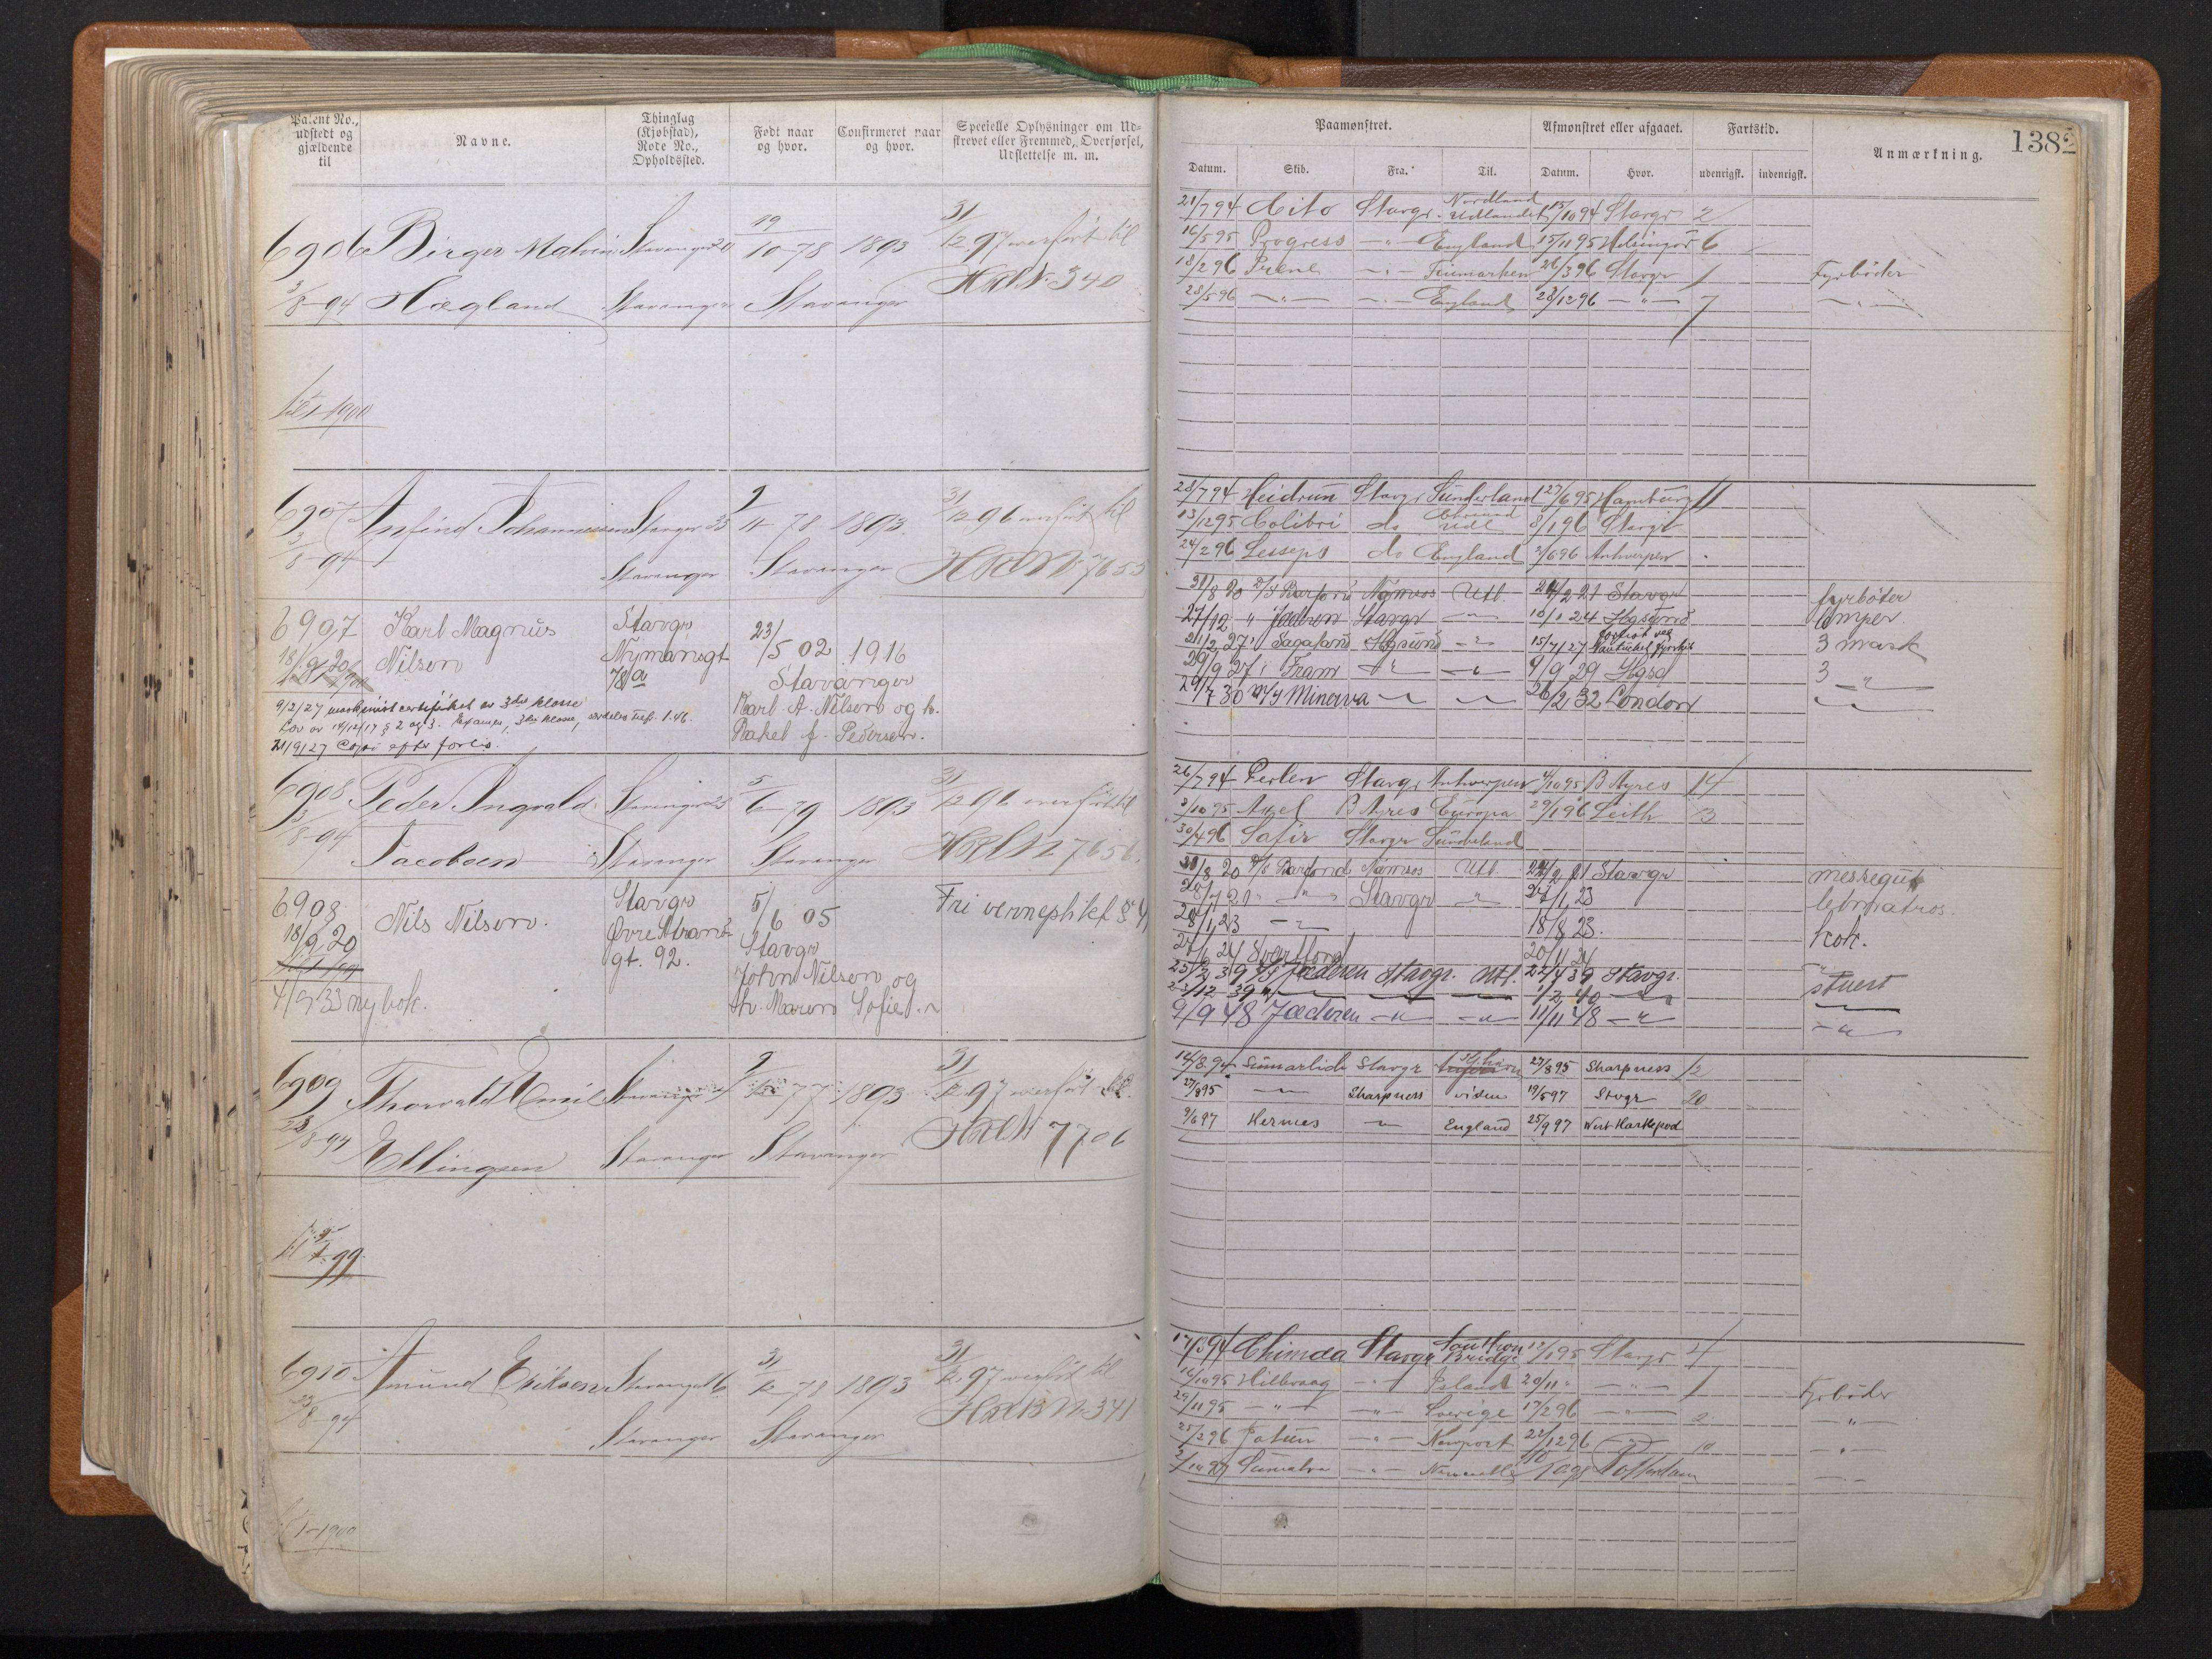 Patent No., udstedt og gjældende til
Navne.
Thinglag (Kjøbstad), Rode No., Opholdssted.
Født naar og hvor.
Confirmeret naar og hvor.
Specielle Oplysninger om Udskrevet eller Fremmed, Overførsel, Udslettelse m. m.
6906 Birger Malvin Stavanger 19/10-78 1893 31/12.97 overført til
3/8-94 Hægland Stavanger Stavanger 340
til 1-1900
6907 Anfind Johannessen Stavgr 9/11-78 1893. 31/12 96 overført til
3/8-94 Stavanger Stavanger 7655
6907 Karl Magnus Stavgr 23/5 02 1916
18/9 20 Nilsen Nymansgt Stavanger
78a Karl A. Nilsen og h.
9/2/27 maskinist certifikat av 3die klasse
Lov av 14/12/17 § 2 og 3. 3die klasse,
Rakel f. Pedersen.
21/9/27 Copi efter forlis.
6908 Peder Ingvald Stavanger 5/6-79 1893 31/12 96 overført til
3/8-94 Jacobsen Stavanger Stavanger 7656.
6908 Nils Nilsen. Stavgr 5/6 05 Fri verneplikt
18/9 20 Øvre Strand Stavgr
gt. 92. John Nilsen og
4/9 33 ny bok. h. Maren Sofie
6909 Thorvald Emil Stavanger 9/12 77 1893 31/12.97 overført til
23/8-94 Ellingsen Stavanger Stavanger 7706
til 1-99
6910 Amund Eriksen Stavanger 6 31/12-78 1893 31/12.97 overført til
23/8-94 Stavanger Stavanger 341
1-1900
Paamønstret.
Afmønstret eller afgaaet.
Fartstid.
Anmærkning.
1382
Datum. Skib. Fra. Til. Datum. Hvor. udenrigsk. indenrigsk.
21/7 94 Cito Stavgr. Nordland Udlandet 15/10 94 Stavgr 2
16/5 95 Progress -"- England 15/11 95 Helsingør 6
18/2 96 Irene -"- Finmarken 26/3 96 Stavgr 1 Fyrbøder
28/5 96 -"- -"- England 28/12 96 -"- 7 -"-
28/7 94 Heidrun Stavgr Sunderland 27/6 95 Hamburg 11
13/12 95 Colibri do Udl 8/1 96 Stavgr
24/2 96 Lesseps do England 2/6 96 Antwerpen
31/8 20 D/S Namsos Utl. 24/2 21 Stavgr fyrbøter
27/12 " Jæderen Stavgr -"- 10/1 24 Hgsund lemper
21/2 27 " Sagatind Hgsund -"- 15/7 27 forlist ved 3 mask
29/9 27 " Fram -"- -"- 9/9 29 Hgsd 3 -"-
29/7 30 M/S Minerva -"- -"- 26/2 32 London -"-
26/7 94 Perlen Stavgr Antwerpen 4/10 95 B Ayres 14
3/10 95 Axel B Ayres Europa 29/1 96 Leith 3
30/4 96 Safir Stavgr Sunderland
31/8 20 D/S Namsos Utl. 24/2 21 Stavgr messegut
28/7 21 " -"- Stavgr -"- 24/1 23 letmatros.
28/1 23 -"- 18/8 23. kok.
24/6 24 Svertfond 20/11 24
25/2 39 D/S Jæderen Stavgr. Utl. 22/4 39 Stavgr. stuert
23/12 39 -"- -"- -"- 1/2 40 -"- -"-
9/9 48 Jæderen -"- -"- 11/11 48 -"- -"-
14/8.94 Sumarlide Stavgr 27/8 95 Sharpness 12
27/8 95 -"- Sharpness viden 19/5 97 Stvgr 20
9/6 97 Hermes -"- England 25/9 97 West Hartlepool
17/8 94 Chimda Stavgr Southron Bridge 12/1 95 Stavgr 4
16/10 95 Hillevaag -"- Island 20/11 " -"- 1 Fyrbøder
29/11 95 -"- -"- Sverige 17/2 96 -"- 2 -"-
25/2 96 Jatun -"- Newport 22/12 96 -"- 10 -"-
2/10 97 Sumatra -"- Newcastle Rotterdam -"-